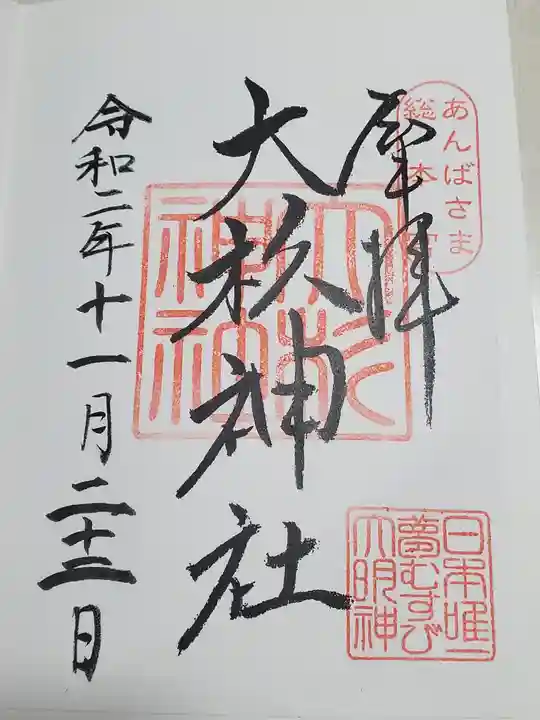 あんばさま
総本宮
奉拝
大杉神社
大杉
神社
令和二年十一月二十三日
日本唯一
夢むすび
大明神